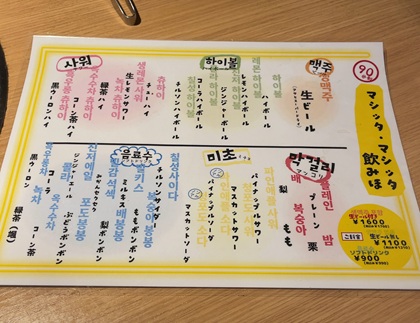 90分
マシッタ・マシッタ
飲みほ
맥주
생맥주
生ビール
하이볼
하이볼
ハイボール
레몬하이볼
レモンハイボール
진저하이볼
ジンジャーハイボール
콜라하이볼
コーラハイボール
칠성하이볼
チルソンハイボール
사워
츄하이
チューハイ
생레몬사워
生レモンサワー
녹차츄하이
緑茶ハイ
옥수수차츄하이
コーン茶ハイ
흑우롱츄하이
黒ウーロンハイ
막걸리
マッコリ
플레인
プレーン
밤
栗
복숭아
もも
배
梨
미초
파인애플사워
パイナップルサワー
マスカットサワー
パイナップルソーダ
マスカットソーダ
음료수
칠성사이다
チルソンサイダー
복숭아봉봉
ももボンボン
밀키스
ミルキス
배봉봉
梨ボンボン
감귤색색
みかんセクセク
포도봉봉
ぶどうボンボン
진저에일
ジンジャーエール
콜라
コーラ
옥수수차
コーン茶
녹차
緑茶
흑우롱
黒ウーロン
生ビール付き
生ビール無し
¥1100
ソフトドリンク
¥900